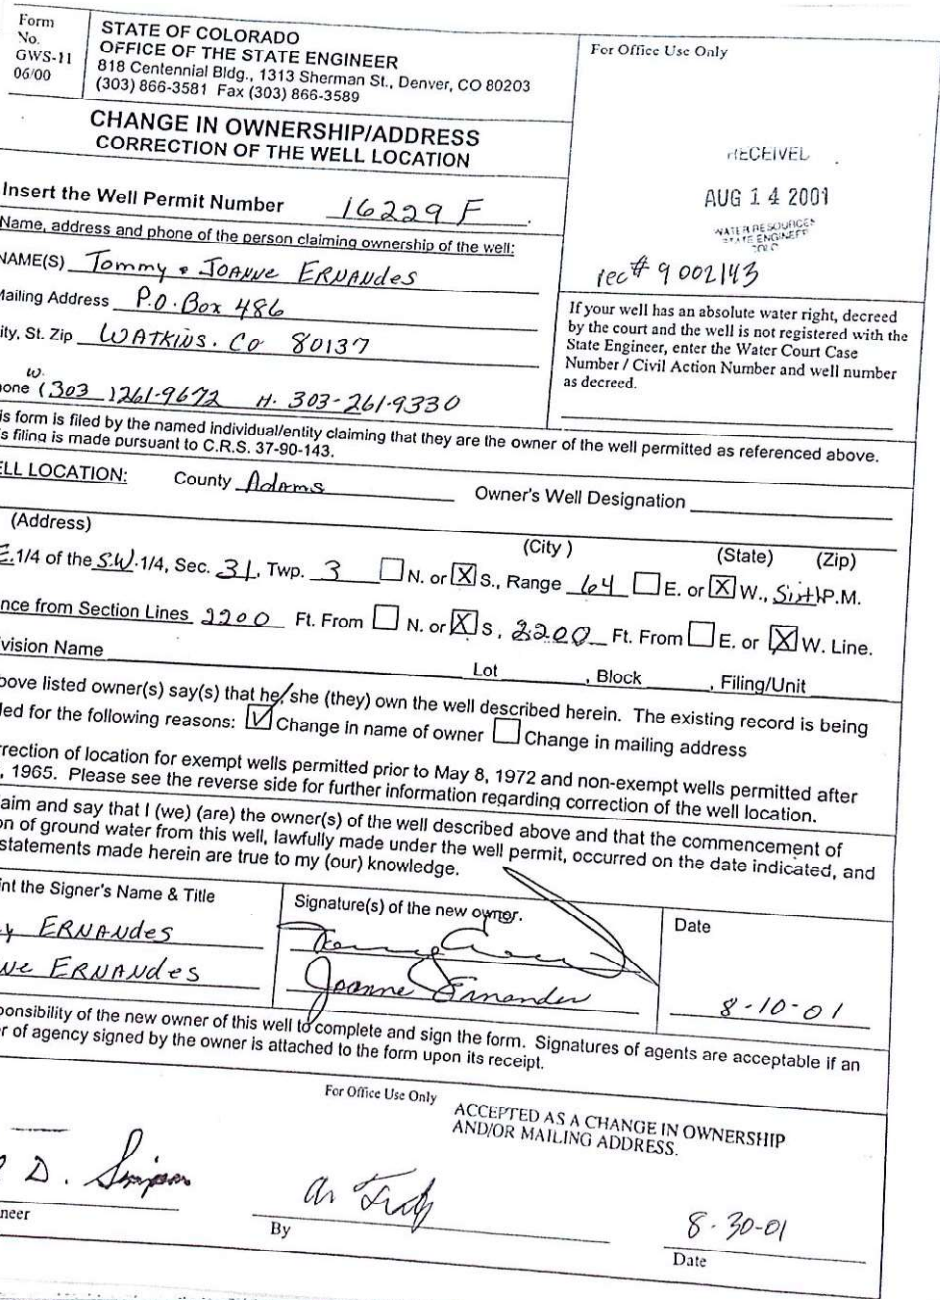 Form
No.
GWS-11
06/00
STATE OF COLORADO
OFFICE OF THE STATE ENGINEER
818 Centennial Bldg., 1313 Sherman St., Denver, CO 80203
(303) 866-3581 Fax (303) 866-3589
For Office Use Only
CHANGE IN OWNERSHIP/ADDRESS
CORRECTION OF THE WELL LOCATION
RECEIVE
AUG 14 2001
WATER RESOURCES
STATE ENGINEER
COLO
rec# 9002143
Insert the Well Permit Number 16229 F
Name, address and phone of the person claiming ownership of the well:
NAME(S) Tommy & JOANNE ERNANDES
Mailing Address P.O. Box 486
ity, St. Zip WATKINS. CO 80137
w.
one (303) 261-9672 H. 303-261-9330
If your well has an absolute water right, decreed
by the court and the well is not registered with the
State Engineer, enter the Water Court Case
Number / Civil Action Number and well number
as decreed.
is form is filed by the named individual/entity claiming that they are the owner of the well permitted as referenced above.
s filing is made pursuant to C.R.S. 37-90-143.
ELL LOCATION: County Adams Owner's Well Designation
(Address) (City ) (State) (Zip)
E.1/4 of the S.W.1/4, Sec. 31, Twp. 3 N. or X S., Range 64 E. or X W., Sixth P.M.
nce from Section Lines 2200 Ft. From N. or X S, 2200 Ft. From E. or X W. Line.
vision Name Lot , Block , Filing/Unit
bove listed owner(s) say(s) that he/she (they) own the well described herein. The existing record is being
led for the following reasons: ✓ Change in name of owner Change in mailing address
rrection of location for exempt wells permitted prior to May 8, 1972 and non-exempt wells permitted after
, 1965. Please see the reverse side for further information regarding correction of the well location.
laim and say that I (we) (are) the owner(s) of the well described above and that the commencement of
on of ground water from this well, lawfully made under the well permit, occurred on the date indicated, and
statements made herein are true to my (our) knowledge.
int the Signer's Name & Title
y ERNANDES
NE ERNANDES
Signature(s) of the new owner.
Joanne Ernandes
Date
8-10-01
ponsibility of the new owner of this well to complete and sign the form. Signatures of agents are acceptable if an
r of agency signed by the owner is attached to the form upon its receipt.
For Office Use Only
ACCEPTED AS A CHANGE IN OWNERSHIP
AND/OR MAILING ADDRESS.
D. Simpson
neer
By
8-30-01
Date